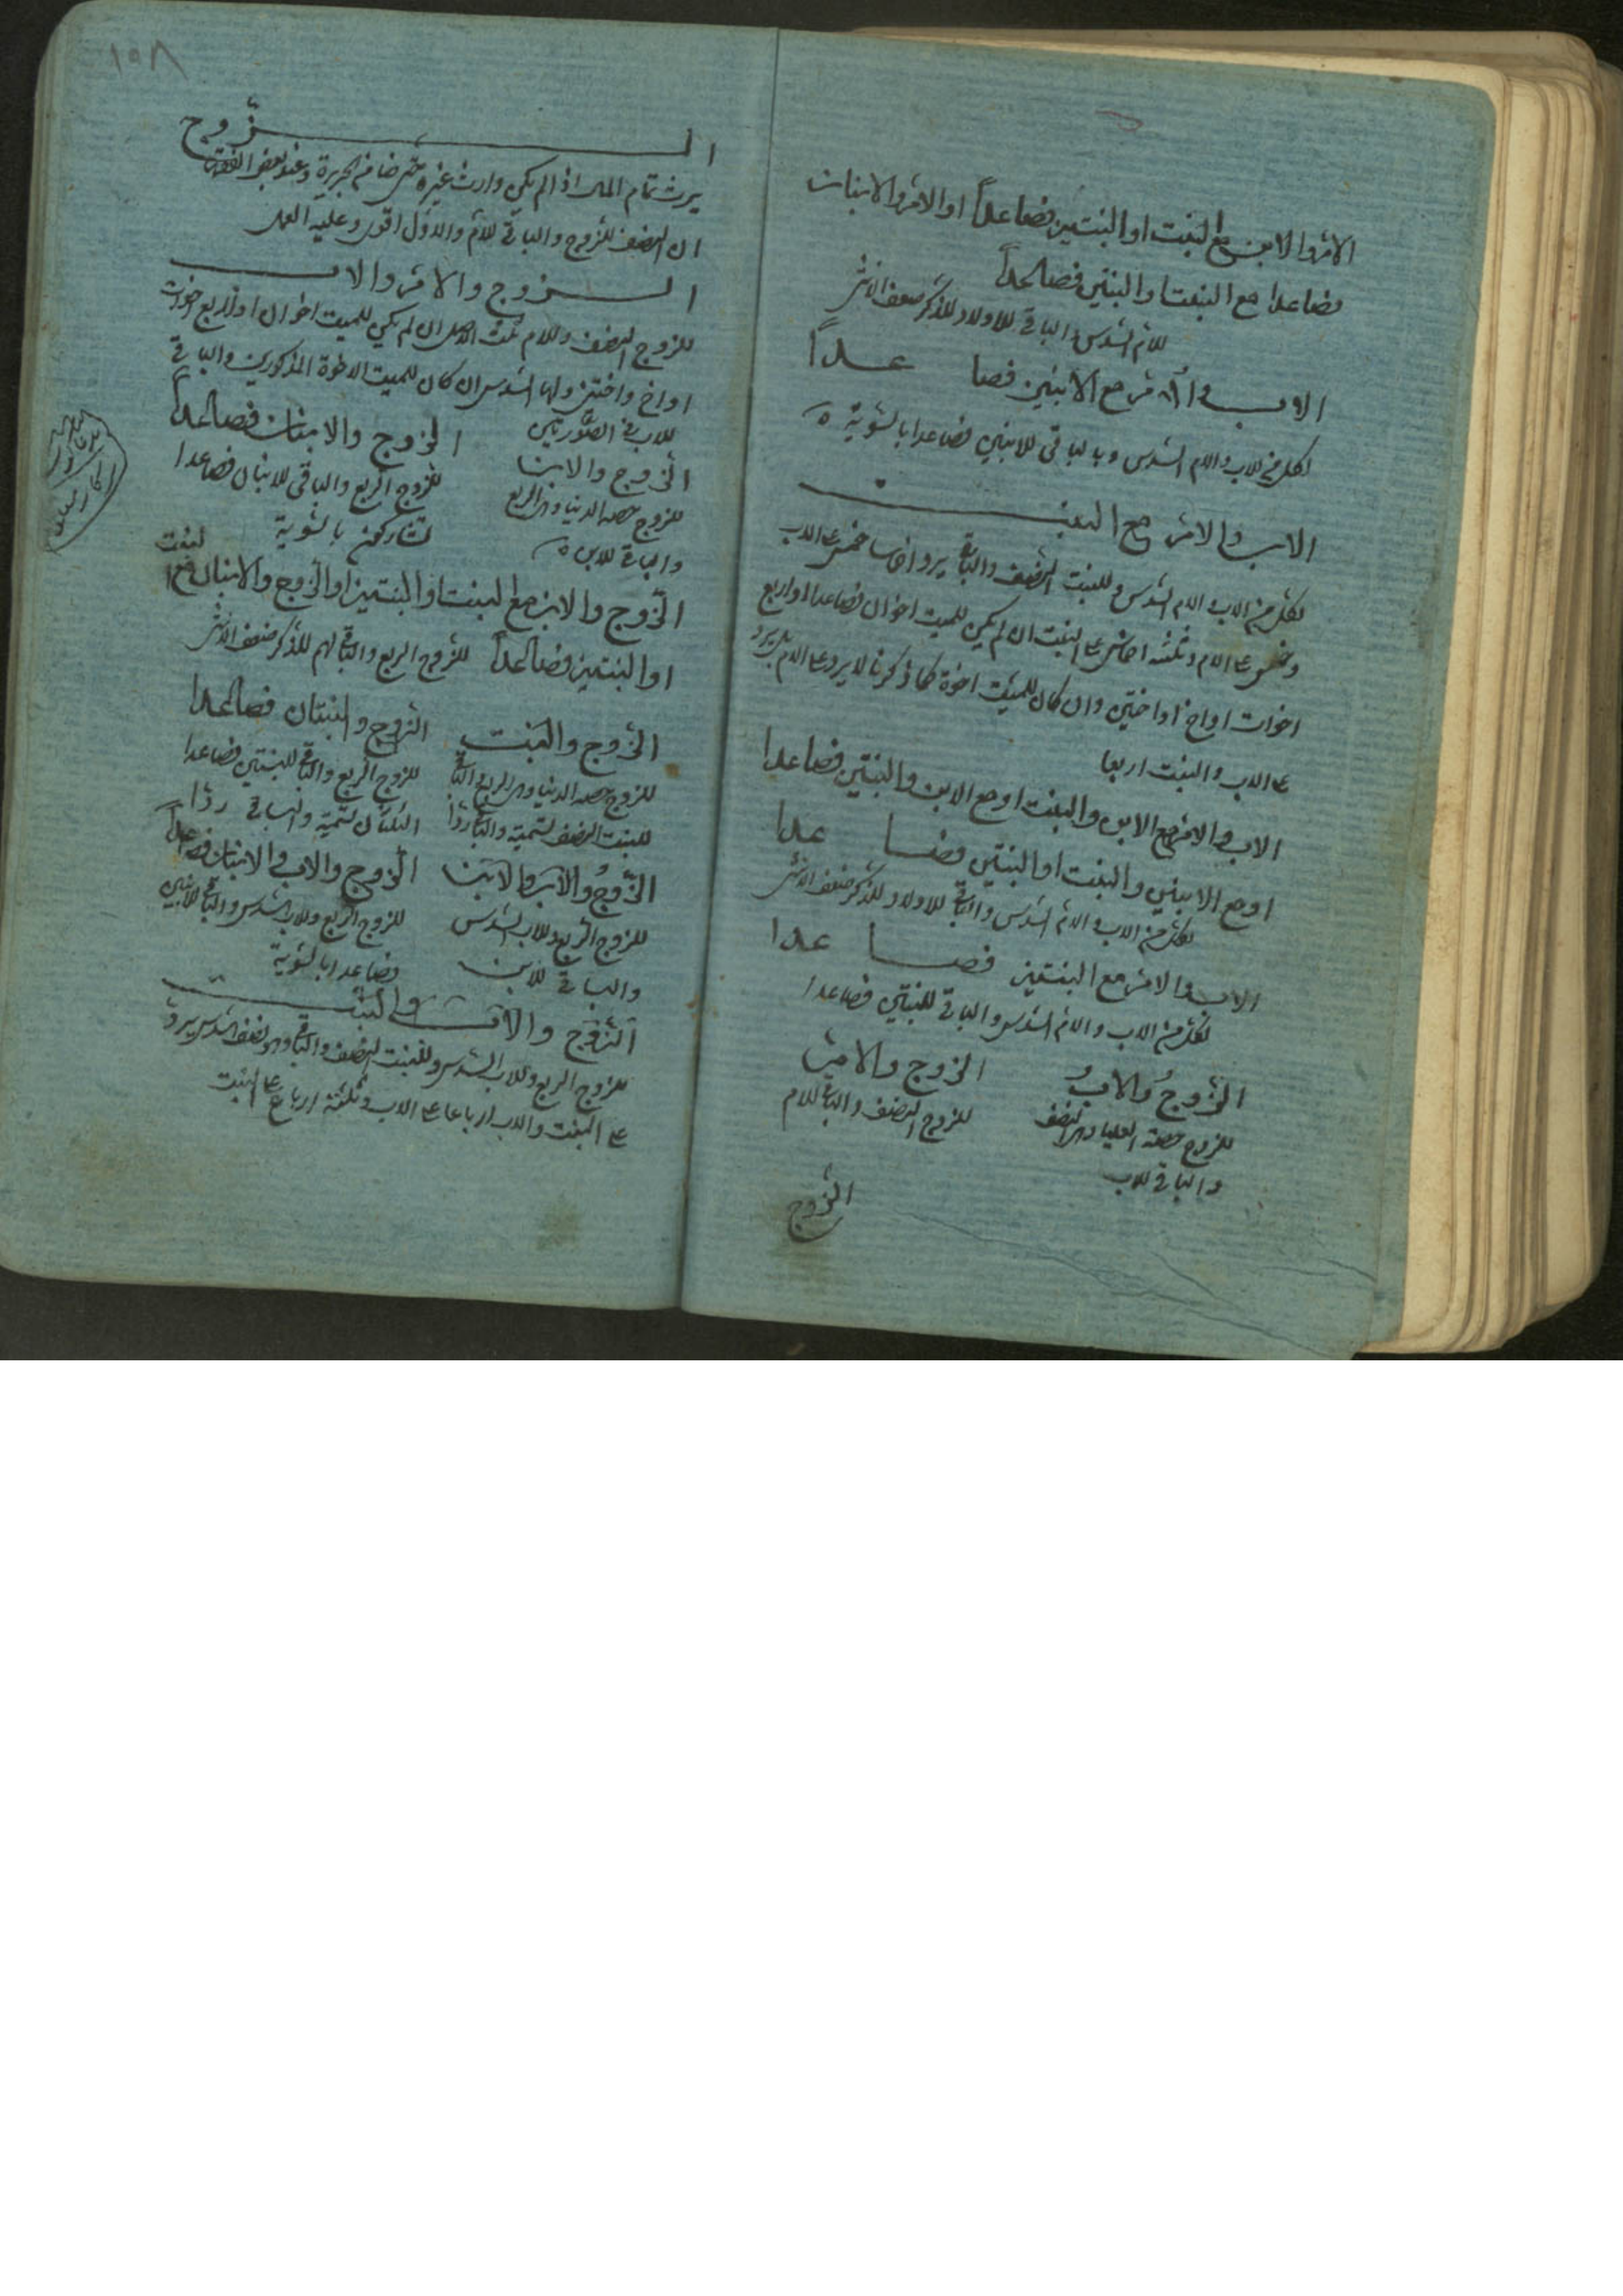 الام والابن مع البنت او البنتين فصاعداً او الام والابنان
فصاعدا مع البنت او البنتين فصاعداً
للام السدس والباقي للاولاد للذكر ضعف الانثى
الاب والام مع الابنين فصا عداً
لكل من الاب والام السدس والباقي للابنين فصاعدا بالسوية
الاب والام مع البنت
لكل من الاب والام السدس وللبنت النصف والباقي يرد اخماسا خمس على الاب
وخمس على الام وثلثة اخماس على البنت ان لم يكن للميت اخوان فصاعدا او اربع
اخوات او اخ او اختين وان كان للميت اخوة كما ذكرنا لا يرد على الام بل يرد
على الاب والبنت ارباعا
الاب والام مع الابن والبنت او مع الابن والبنتين فصاعدا
او مع الابنين والبنت او البنتين فصا عدا
لكل من الاب والام السدس والباقي للاولاد للذكر ضعف الانثى
الاب والام مع البنتين فصا عدا
لكل من الاب والام السدس والباقي للبنتين فصاعدا
الزوج والاب الزوج والام
للزوج حصته العليا وهي النصف للزوج النصف والباقي للام
والباقي للاب
الزوج
١٥٨
الزوج
يرث تمام المال اذا لم يكن وارث غيره حتى ضامن الجريرة وعند بعض الفقهاء
ان النصف للزوج والباقي للامام والاول اقوى وعليه العمل
الزوج والام والاب
للزوج النصف وللام ثلث الاصل ان لم يكن للميت اخوان او اربع اخوات
او اخ واختين ولها السدس ان كان للميت الاخوة المذكورين والباقي
للاب في الصورتين
الزوج والابن الزوج والابنان فصاعداً
للزوج حصته الدنيا وهي الربع للزوج الربع والباقي للابنان فصاعدا
والباقي للابن بالسوية
الزوج والابن مع البنت او البنتين او الزوج والابنان مع البنت
او البنتين فصاعداً للزوج الربع والباقي لهم للذكر ضعف الانثى
الزوج والبنت الزوج والبنتان فصاعدا
للزوج حصته الدنيا وهي الربع للزوج الربع والباقي للبنتين فصاعدا
للبنت النصف تسمية والباقي ردّاً الثلثان تسمية والباقي ردّا
الزوج والاب والابن الزوج والاب والابنان فصاعداً
للزوج الربع وللاب السدس للزوج الربع وللاب السدس والباقي للابنين
والباقي للابن فصاعدا بالسوية
الزوج والاب والبنت
للزوج الربع وللاب السدس وللبنت النصف والباقي وهو نصف السدس يرد
على البنت والاب ارباعا على الاب وثلثة ارباع على البنت